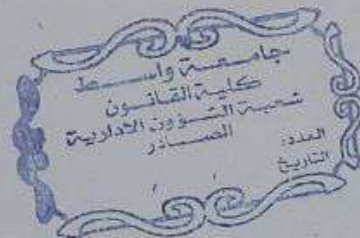 جامعة واسط
كلية القانون
شعبة الشؤون الادارية
الصادر
العدد:
التاريخ / /